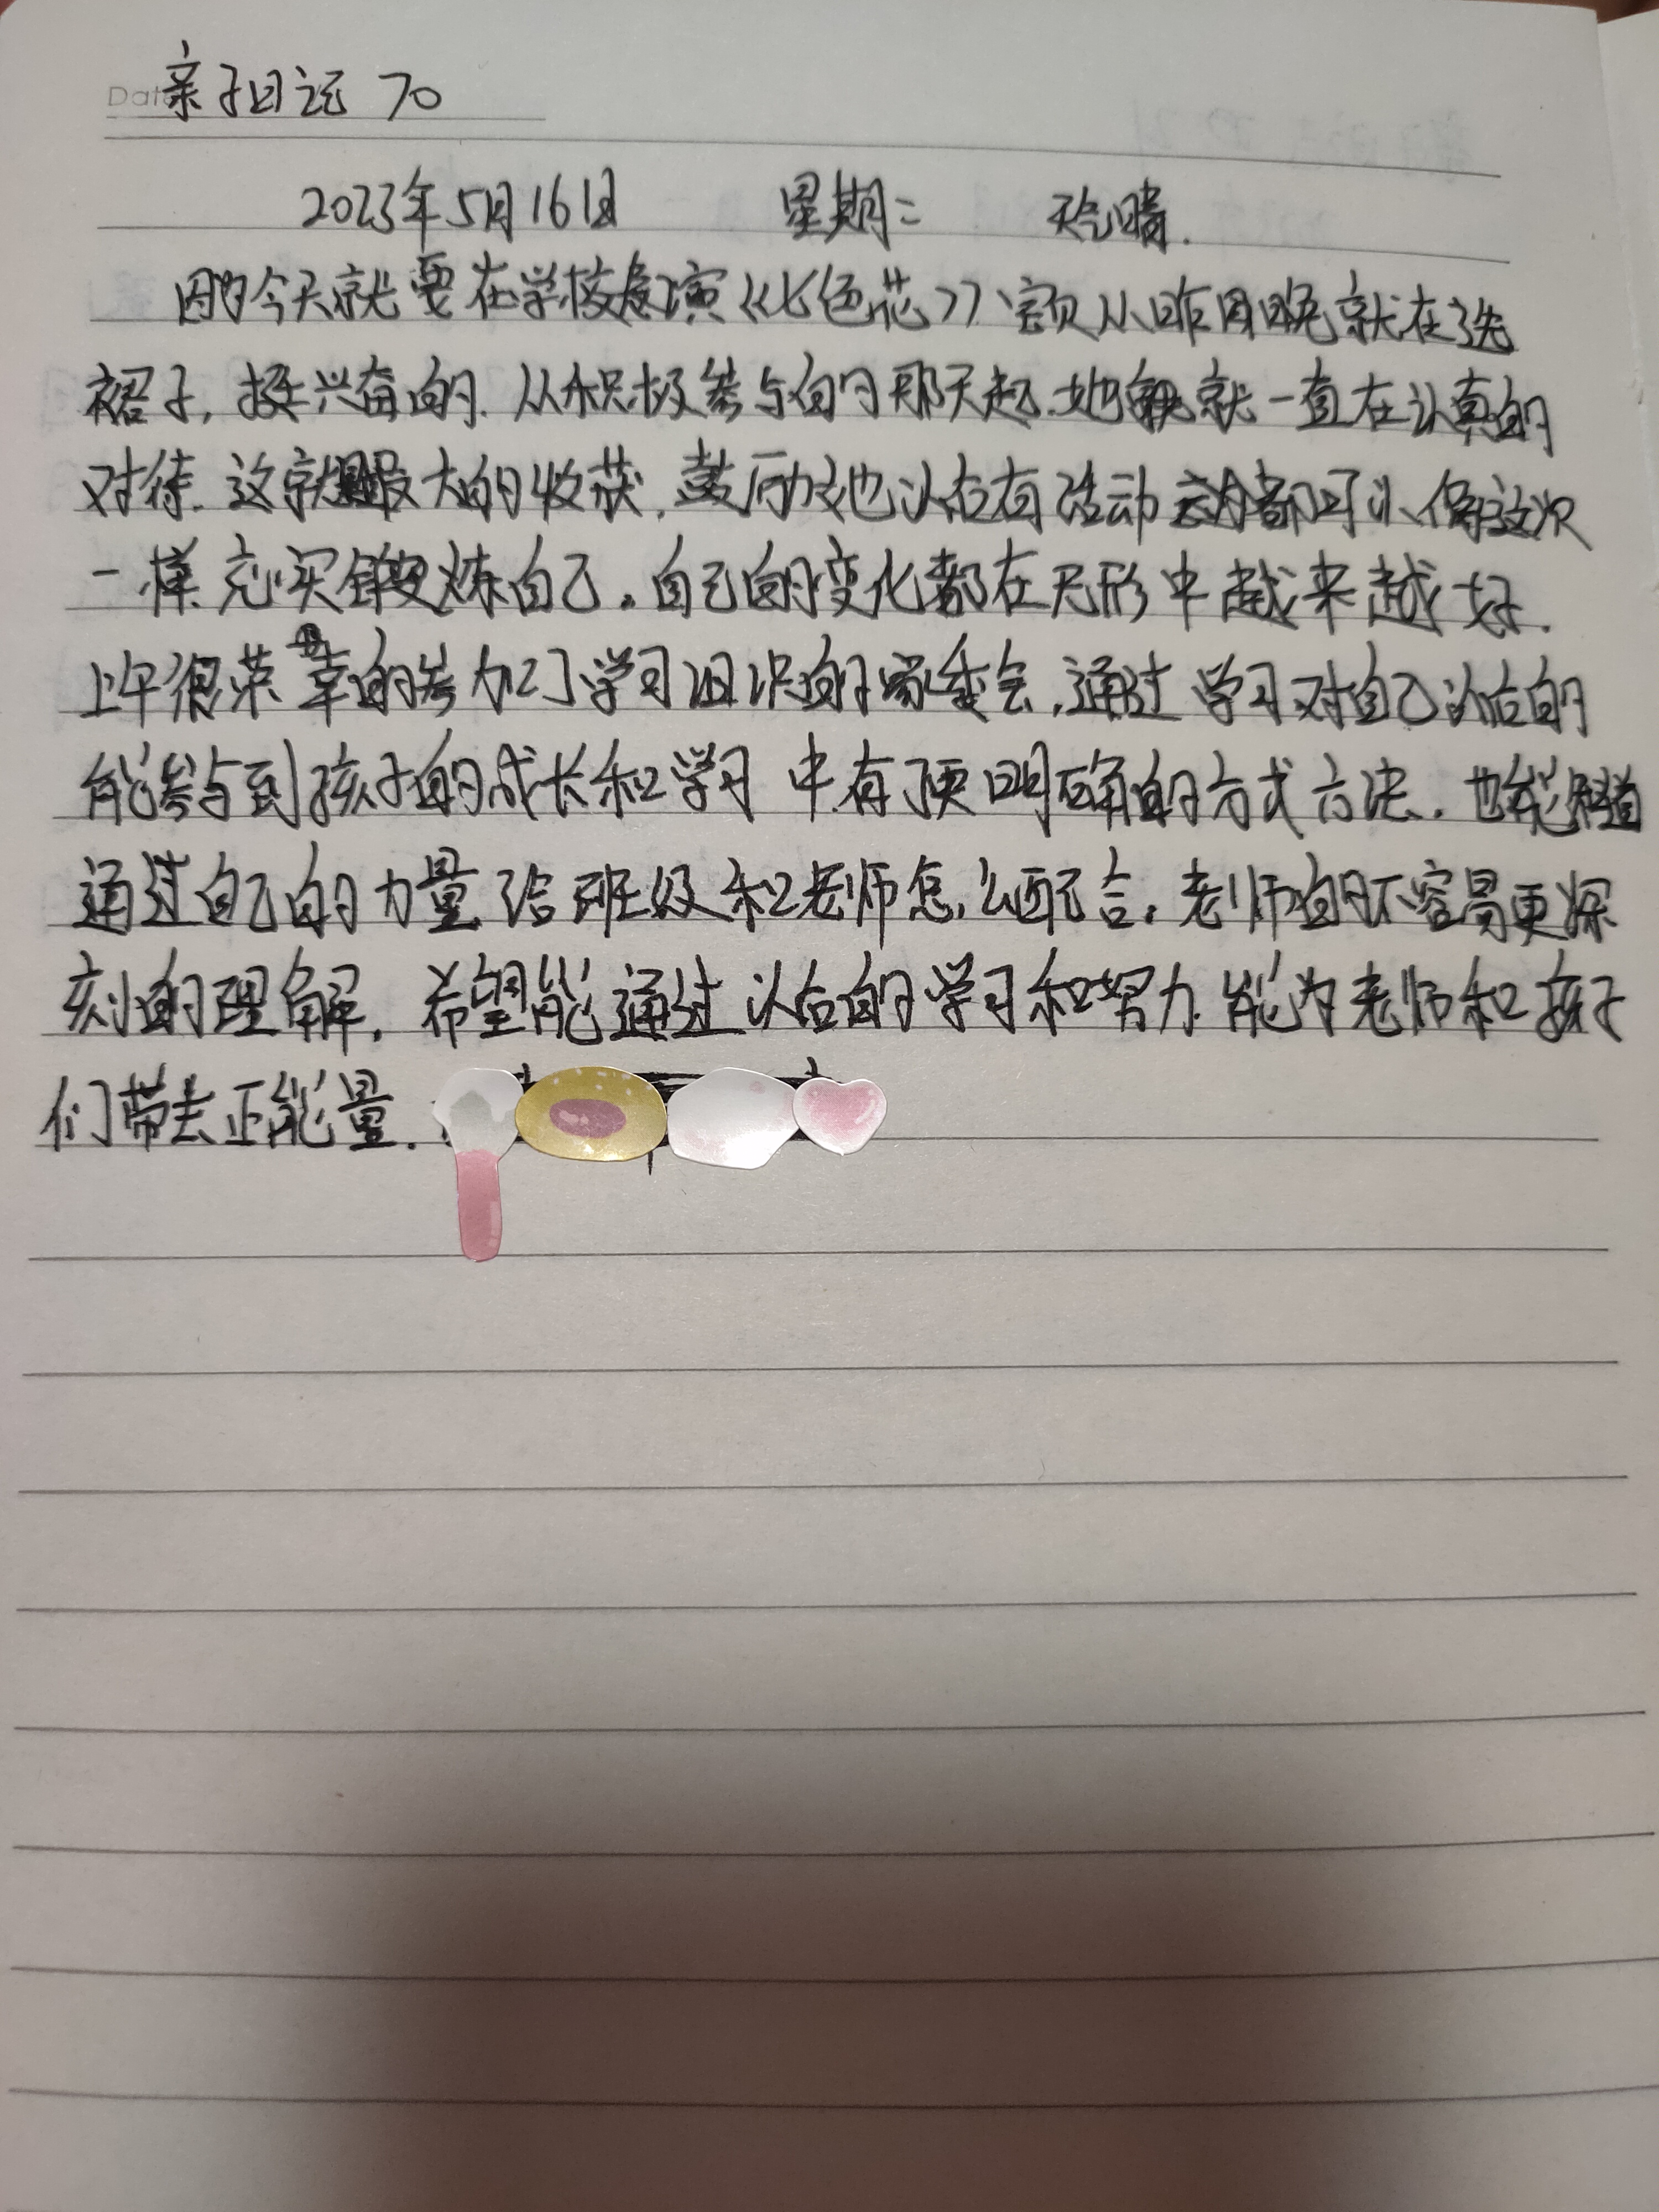 亲子日记 70
Dat
2023年5月16日 星期二 天气晴.
因为今天就要在学校表演《七色花》宝贝从昨日晚就在选
裙子, 挺兴奋的. 从积极参与的那天起.她就一直在认真的
对待. 这就是最大的收获. 鼓励她以后有活动都可以像这次
一样充实锻炼自己。自己的变化都在无形中越来越好.
上午很荣幸的参加了学习组织的家委会.通过学习对自己以后的
能参与到孩子的成长和学习中有了更明确的方式方法. 也能知道
通过自己的力量给班级和老师怎么配合. 老师的不容易更深
刻的理解. 希望能通过以后的学习和努力能为老师和孩子
们带去正能量.